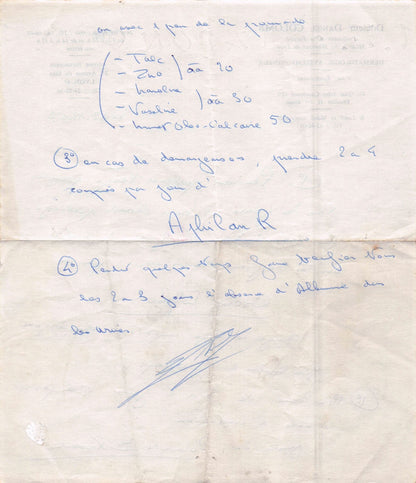 ou avec 1 peu de la pommade
- Talc
- Zno } āā 20
- Lanoline
- Vaseline } āā 30
- Liniment Oleo-Calcaire 50
3° en cas de demangeaisons, prendre 2 a 4
comprimés par jour d'
Aphilan R
4° Pendant quelques temps faire vérifier tous
les 2 a 3 jours l'absence d'Albumine dans
les urines